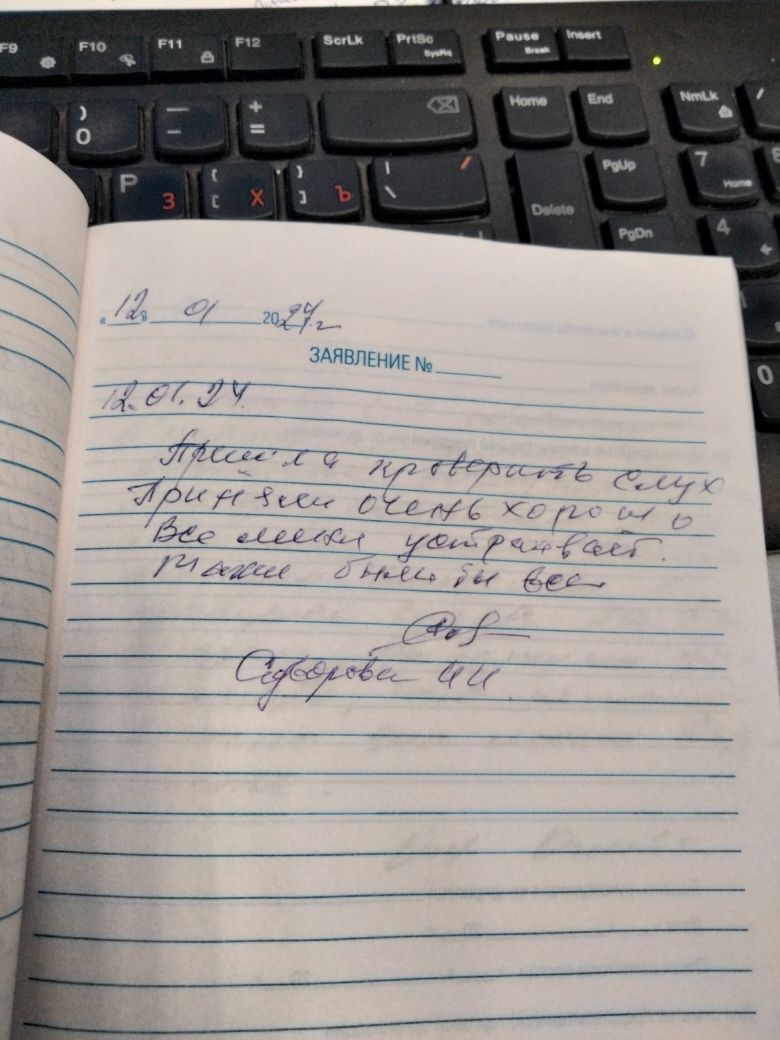 F9 F10 F11 F12 ScrLk PrtSc SysRq Pause Break Insert
) 0 — - + = Home End NmLk
P З { [ Х } ] Ъ | \ / Delete PgUp PgDn 7 Home 8
4
0
«12» 01 2024 г
ЗАЯВЛЕНИЕ №
12.01.24.
Пришла проверить слух
Приняли очень хорошо
Все меня устраивает.
Также были бы все
Суворова И И